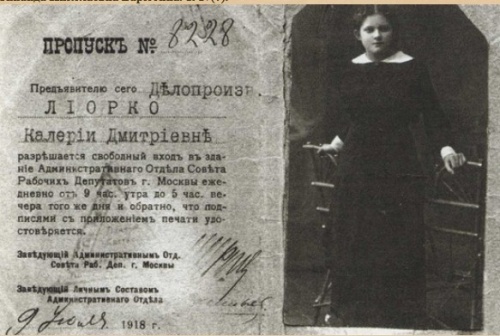 ПРОПУСКЪ № 8228
Предъявителю сего Дѣлопроизв.
ЛІОРКО
Калеріи Дмитріевнѣ
разрѣшается свободный входъ въ зда-
ніе Административнаго Отдѣла Совѣта
Рабочихъ Депутатовъ г. Москвы еже-
дневно отъ 9 час. утра до 5 час. ве-
чера того же дня и обратно, что под-
писями съ приложеніемъ печати удо-
стовѣряется.
Завѣдующій Административнымъ Отд.
Совѣта Раб. Деп. г. Москвы
Завѣдующій Личнымъ Составомъ
Административнаго Отдѣла
9 Іюля 1918 г.